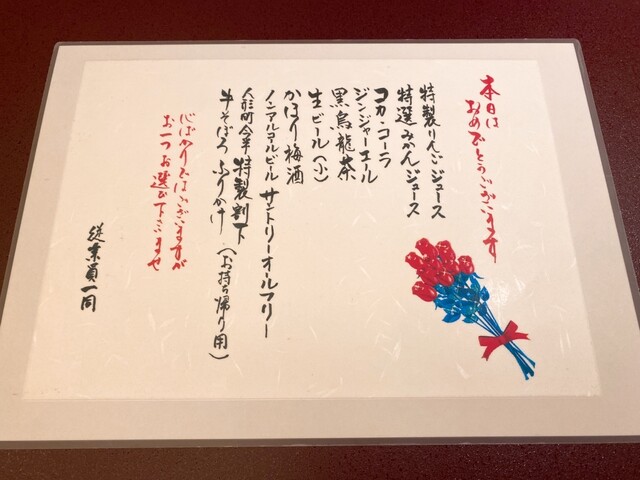 本日は
おめでとうございます
特製りんごジュース
特選みかんジュース
コカ・コーラ
ジンジャーエール
黒烏龍茶
生ビール（小）
かほり梅酒
ノンアルコールビール サントリーオールフリー
人形町今半 特製割下
牛そぼろふりかけ（お持ち帰り用）
心ばかりではございますが
お一つお選び下さいませ
従業員一同